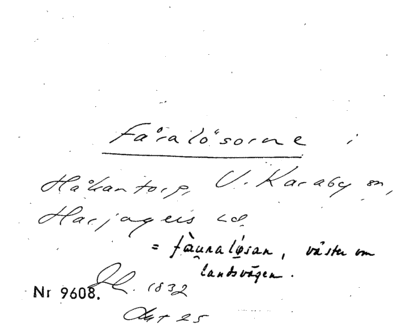 Fåralösorne i
Håkantorp, V. Karaby sn,
Harjagers hd.
= fåunalösan, väster om
landsvägen.
1832
Nr 9608.
Akt 25